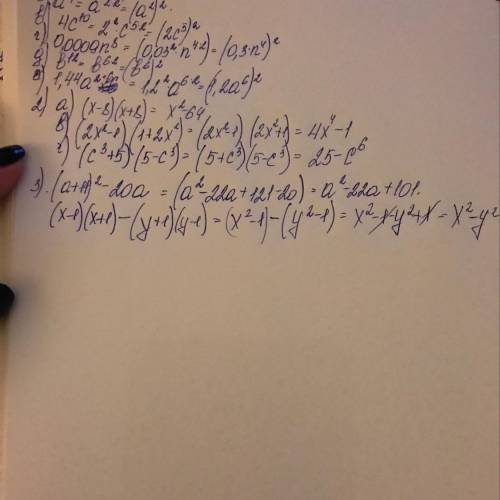 б) a⁴ = a²·² = (a²)².
4c¹⁰ = 2²c⁵·² = (2c⁵)²
0,0009n⁸ = (0,03²n⁴²) = (0,3·n⁴)²
b¹² = b⁶² = (b⁶)²
1,44a = 1,2²a⁶² = (1,2a⁶)²
2) а) (x-8)(x+8) = x²-64
в) (2x²-1)(1+2x²) = (2x²-1)(2x²+1) = 4x⁴-1
г) (c³+5)·(5-c³) = (5+c³)(5-c³) = 25-c⁶
3). (a+11)²-20a = (a²-22a+121-20) = a²-22a+101.
(x-1)(x+1)-(y+1)(y-1) = (x²-1)-(y²-1) = x²-1-y²+1 = x²-y²